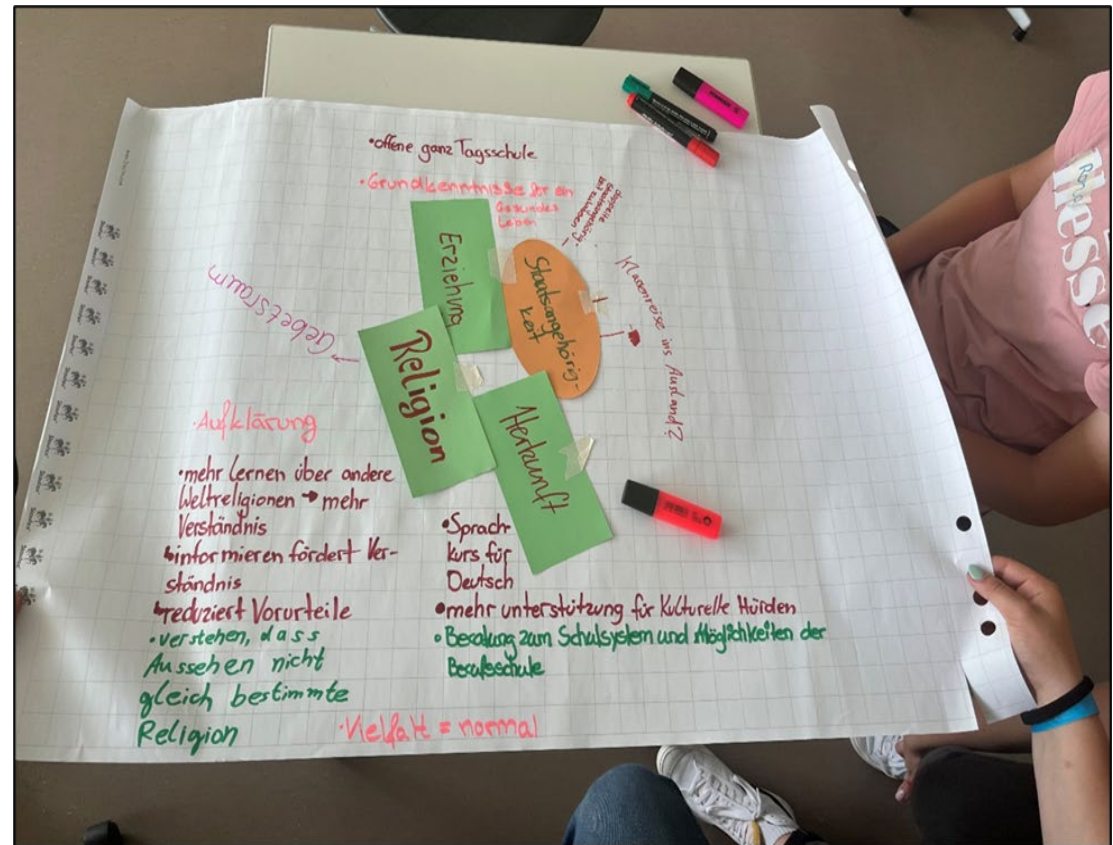 •offene ganz Tagsschule
•Grundkenntnisse für ein
Gesundes
Leben
doppelte
Staatsangehörig-
keit
Erziehung
Staatsangehörig-
keit
Klassenreise ins Ausland?
Gebetsraum
Religion
Herkunft
•Aufklärung
•mehr lernen über andere
Weltreligionen → mehr
Verständnis
↳informieren fördert Ver-
ständnis
↳reduziert Vorurteile
•verstehen, dass
Aussehen nicht
gleich bestimmte
Religion
•Sprach-
kurs für
Deutsch
•mehr unterstützung für Kulturelle Hürden
•Beratung zum Schulsystem und Möglichkeiten der
Berufsschule
•Vielfalt = normal